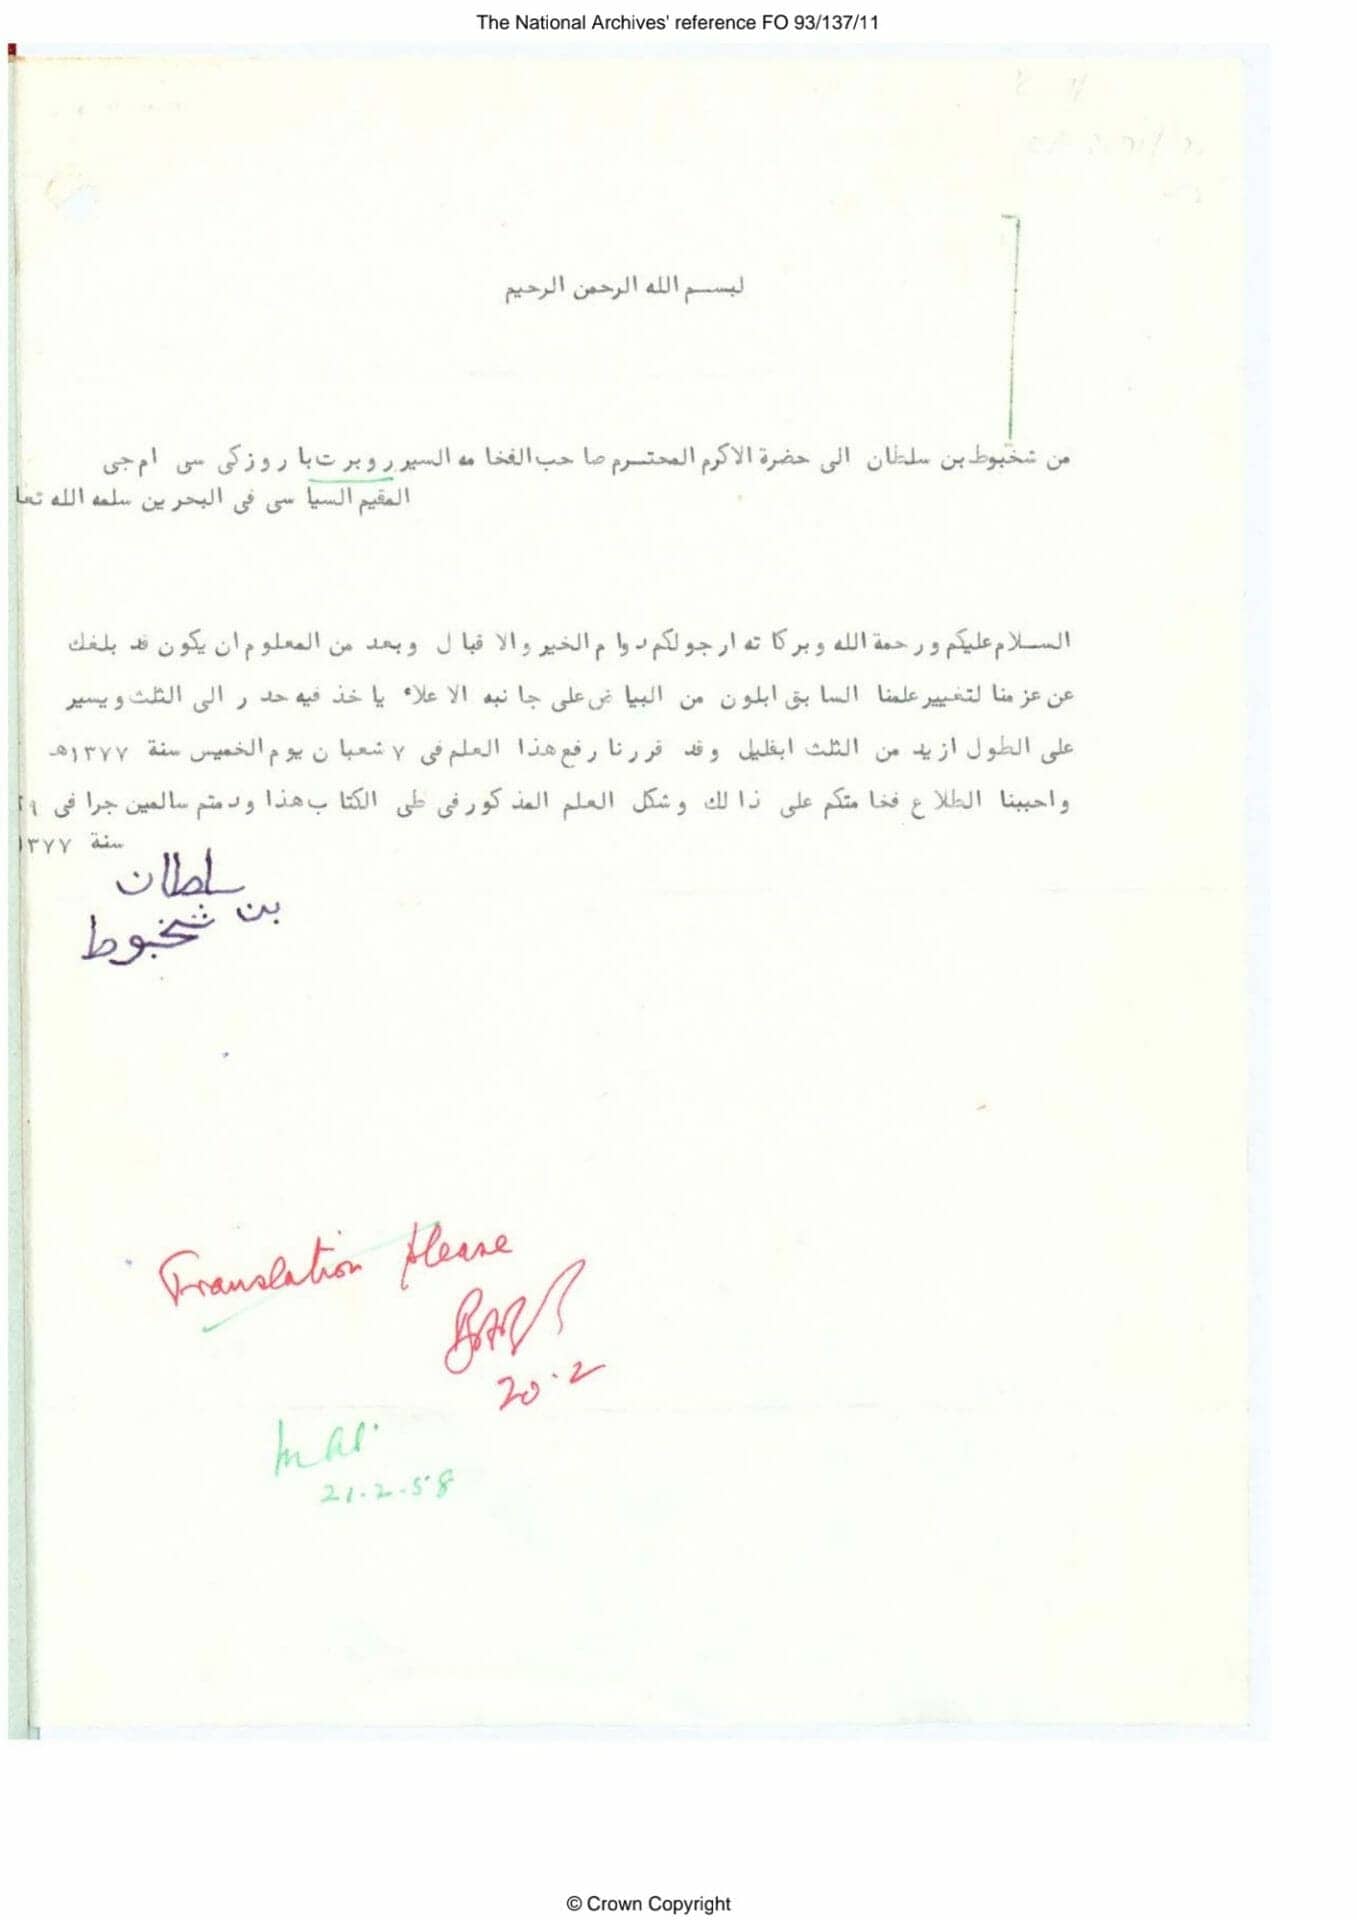 The National Archives' reference FO 93/137/11
لبسم الله الرحمن الرحيم
من شخبوط بن سلطان الى حضرة الاكرم المحتسرم صاحب الفخامه السير روبرت باروزكى سى ام جى
المقيم السياسى فى البحرين سلمه الله تعا
السلام عليكم ورحمة الله وبركاته ارجو لكم دوام الخير والاقبال وبعد من المعلوم ان يكون قد بلغك
عن عزمنا لتغيير علمنا السابق ابلون من البياض على جانبه الاعلاء ياخذ فيه حدر الى الثلث ويسير
على الطول ازيد من الثلث ابقليل وقد قررنا رفع هذا العلم فى ٧ شعبان يوم الخميس سنة ١٣٧٧هـ
واحببنا الطلاع فخامتكم على ذالك وشكل العلم المذكور فى طى الكتاب هذا ودمتم سالمين جرا فى ٢٩
سنة ١٣٧٧
سلطان
بن شخبوط
Translation please
20.2
21.2.58
© Crown Copyright